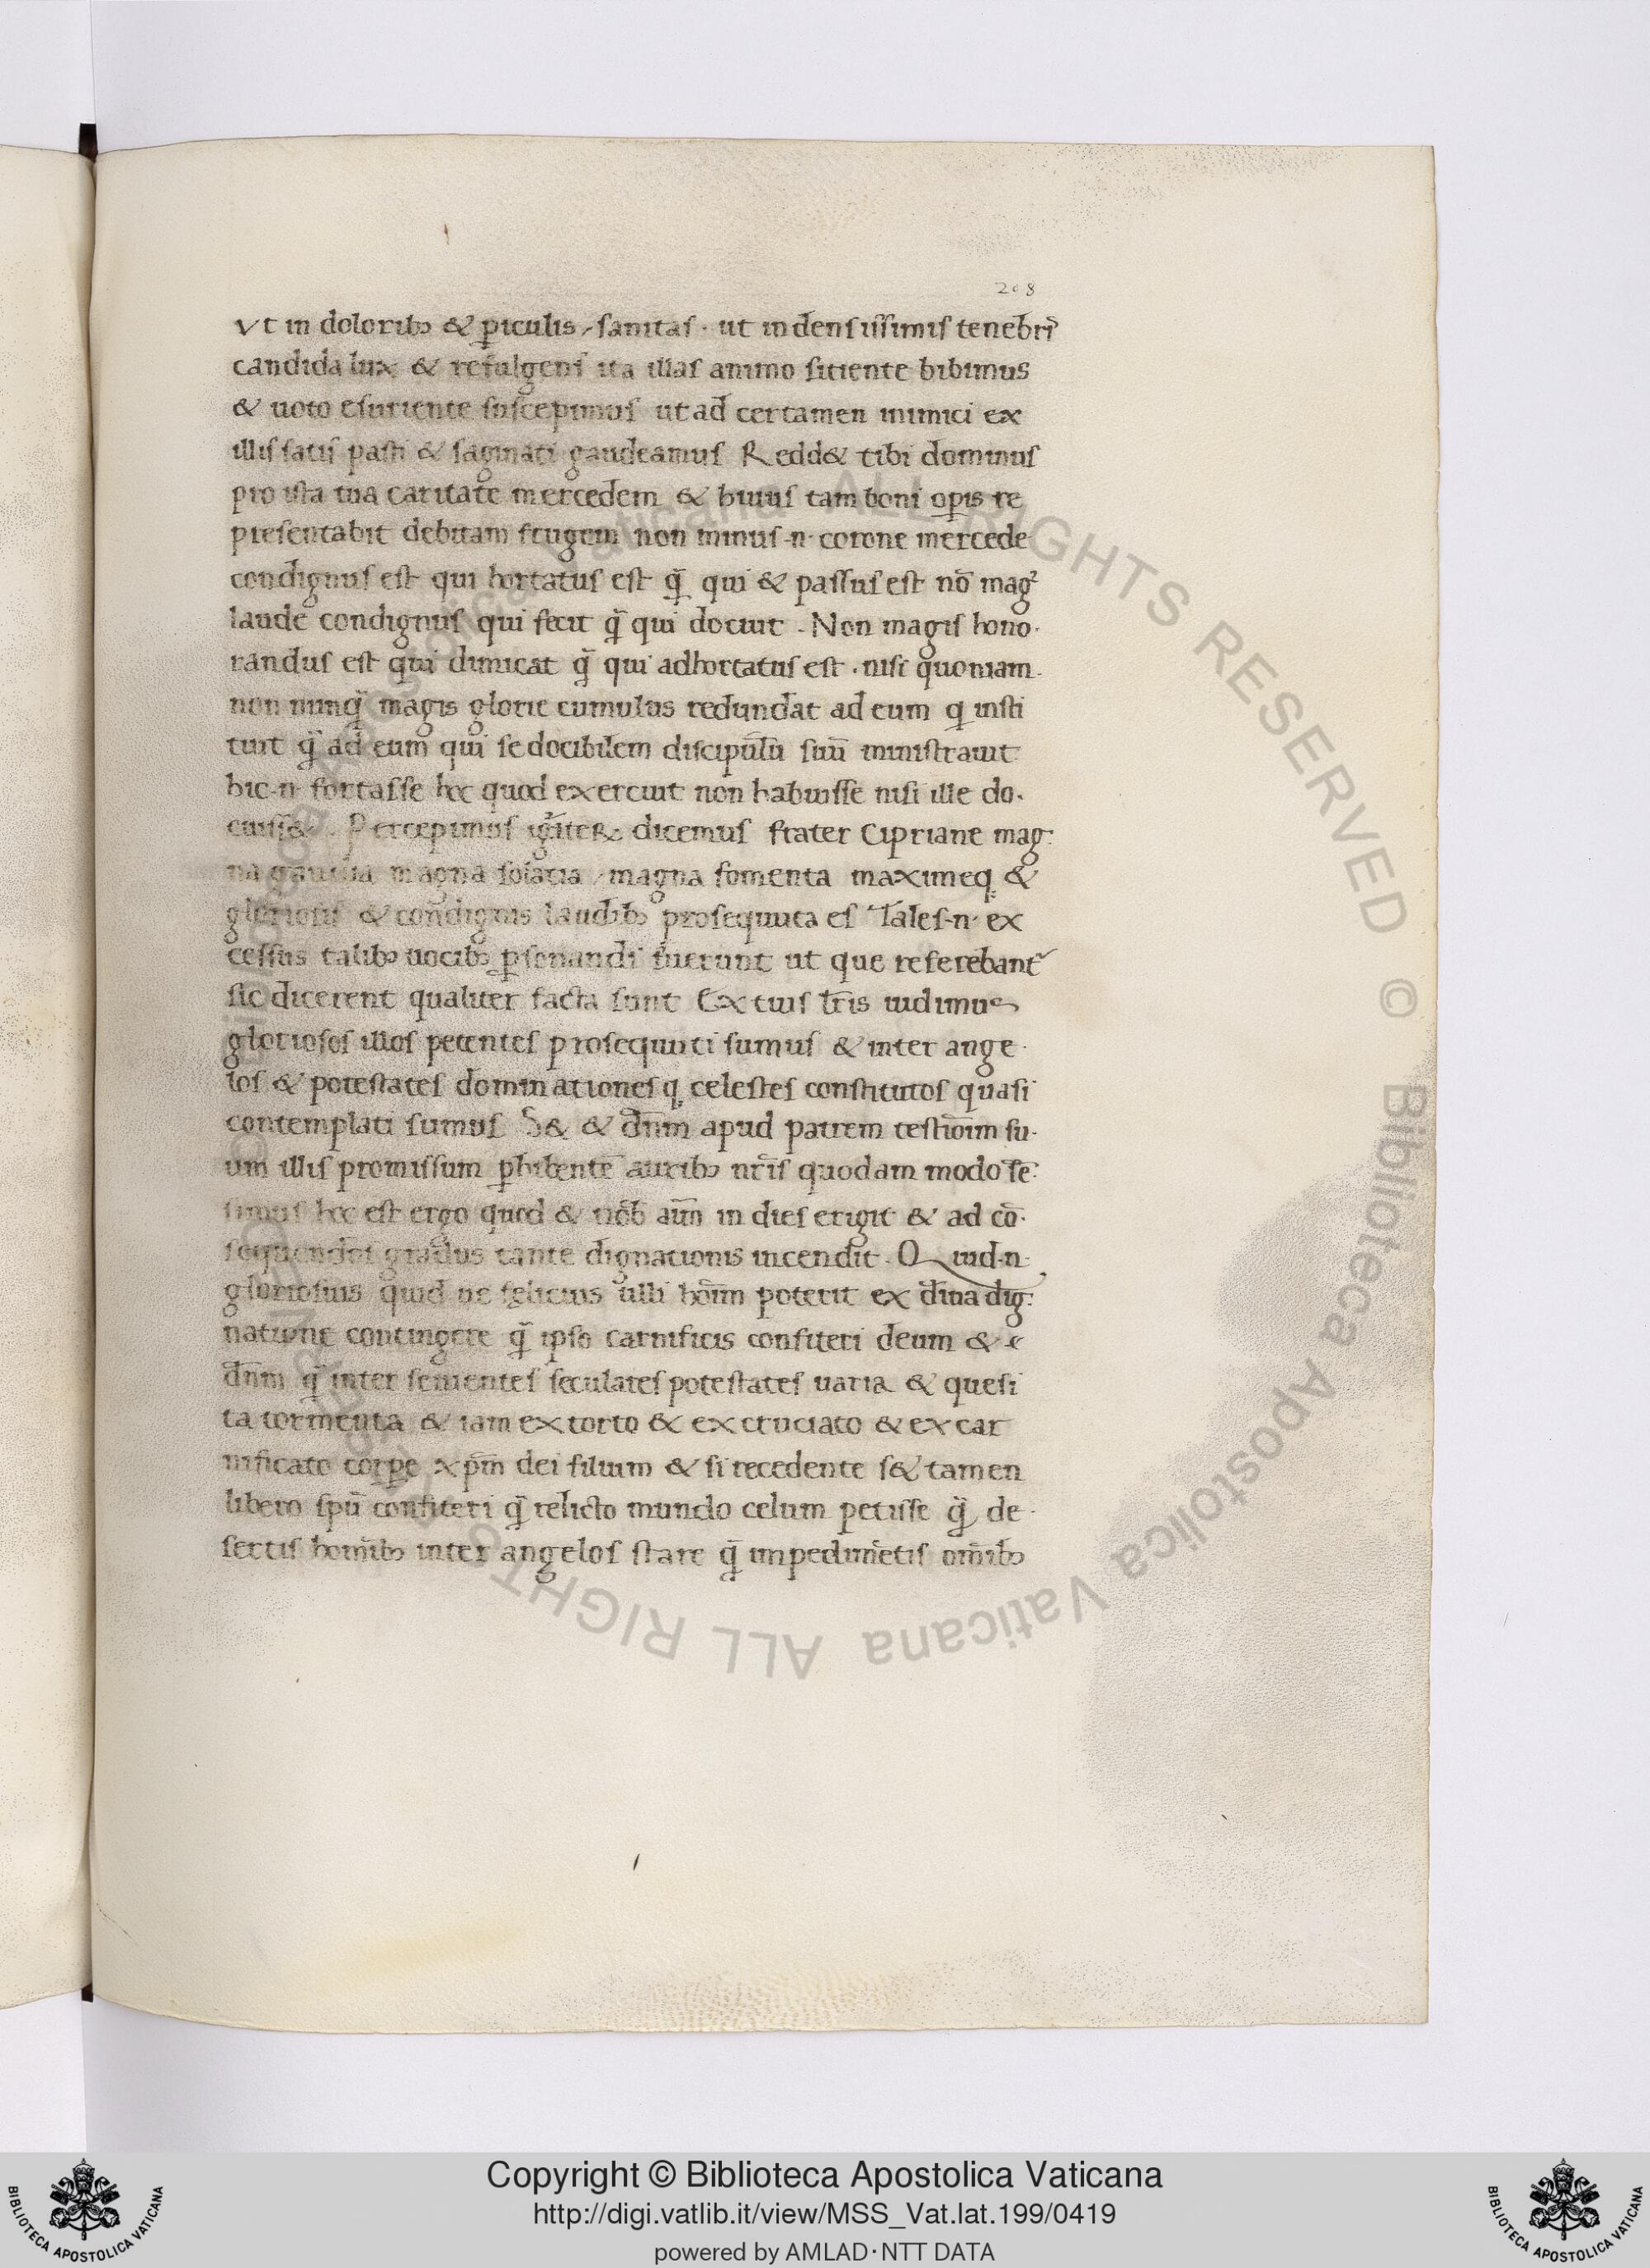 208
Vt in doloribꝫ & ꝑiculis, sanitas · ut in densissimis tenebrꝭ
candida lux & refulgens ita illas animo sitiente bibimus
& uoto esuriente suscepimus ut ad certamen inimici ex
illis satis pasti & saginati gaudeamus Redd& tibi dominus
pro ista tua caritate mercedem & huius tam boni oꝑis re
presentabit debitam frugem non minus ·n· corone mercede
condignus est qui hortatus est q̄ qui & passus est nō mag̉
laude condignus qui fecit q̄ qui docuit . Non magis hono·
randus est qui dimicat q̄ qui adhortatus est . nisi quoniam·
non nunq̄ magis glorie cumulus redundat ad eum q insti
tuit q̄ ad eum qui se docibilem discipulū suū ministrauit
hic ·n· fortasse hoc quod exercuit non habuisse nisi ille do·
cuiss& . Percepimus igit̄ & dicemus frater Cipriane mag·
na gaudia magna solacia , magna fomenta maximeqꝫ &
gloriosis & condignis laudibꝫ prosequuta es Tales ·n· ex
cessus talibꝫ uocibꝫ ꝑsonandi fuerunt ut que referebant᷑
sic dicerent qualiter facta sunt Ex tuis l̄ris uidimus
gloriosos illos petentes prosequuti sumus & inter ange·
los & potestates dominationesqꝫ celestes constitutos quasi
contemplati sumus S& & dn̄m apud patrem testiōīm su·
um illis promissum ꝑhibentē auribꝫ nr̄is quodam modo sē·
simus hoc est ergo quod & nōb aīm in dies erigit & ad cō·
sequendos gradus tante dignationis incendit . Quid ·n·
gloriosius quid ue felicius ulli hoīm poterit ex diīna dig·
natione contingere q̄ ipso carnificis confiteri deum &
dn̄m q̄ inter seuientes seculares potestates uaria & quesi
ta tormenta & iam extorto & excruciato & excar
nificato corꝑe xp̄m dei filium & si recedente s& tamen
libero sp̄u confiteri q̄ relicto mundo celum petisse q̄ de·
sertis homībꝫ inter angelos stare q̄ impedimētis om̄ibꝫ
ALL RIGHTS RESERVED © Biblioteca Apostolica Vaticana ALL RIGHTS
Copyright © Biblioteca Apostolica Vaticana
http://digi.vatlib.it/view/MSS_Vat.lat.199/0419
powered by AMLAD·NTT DATA
BIBLIOTECA APOSTOLICA VATICANA
BIBLIOTECA APOSTOLICA VATICANA